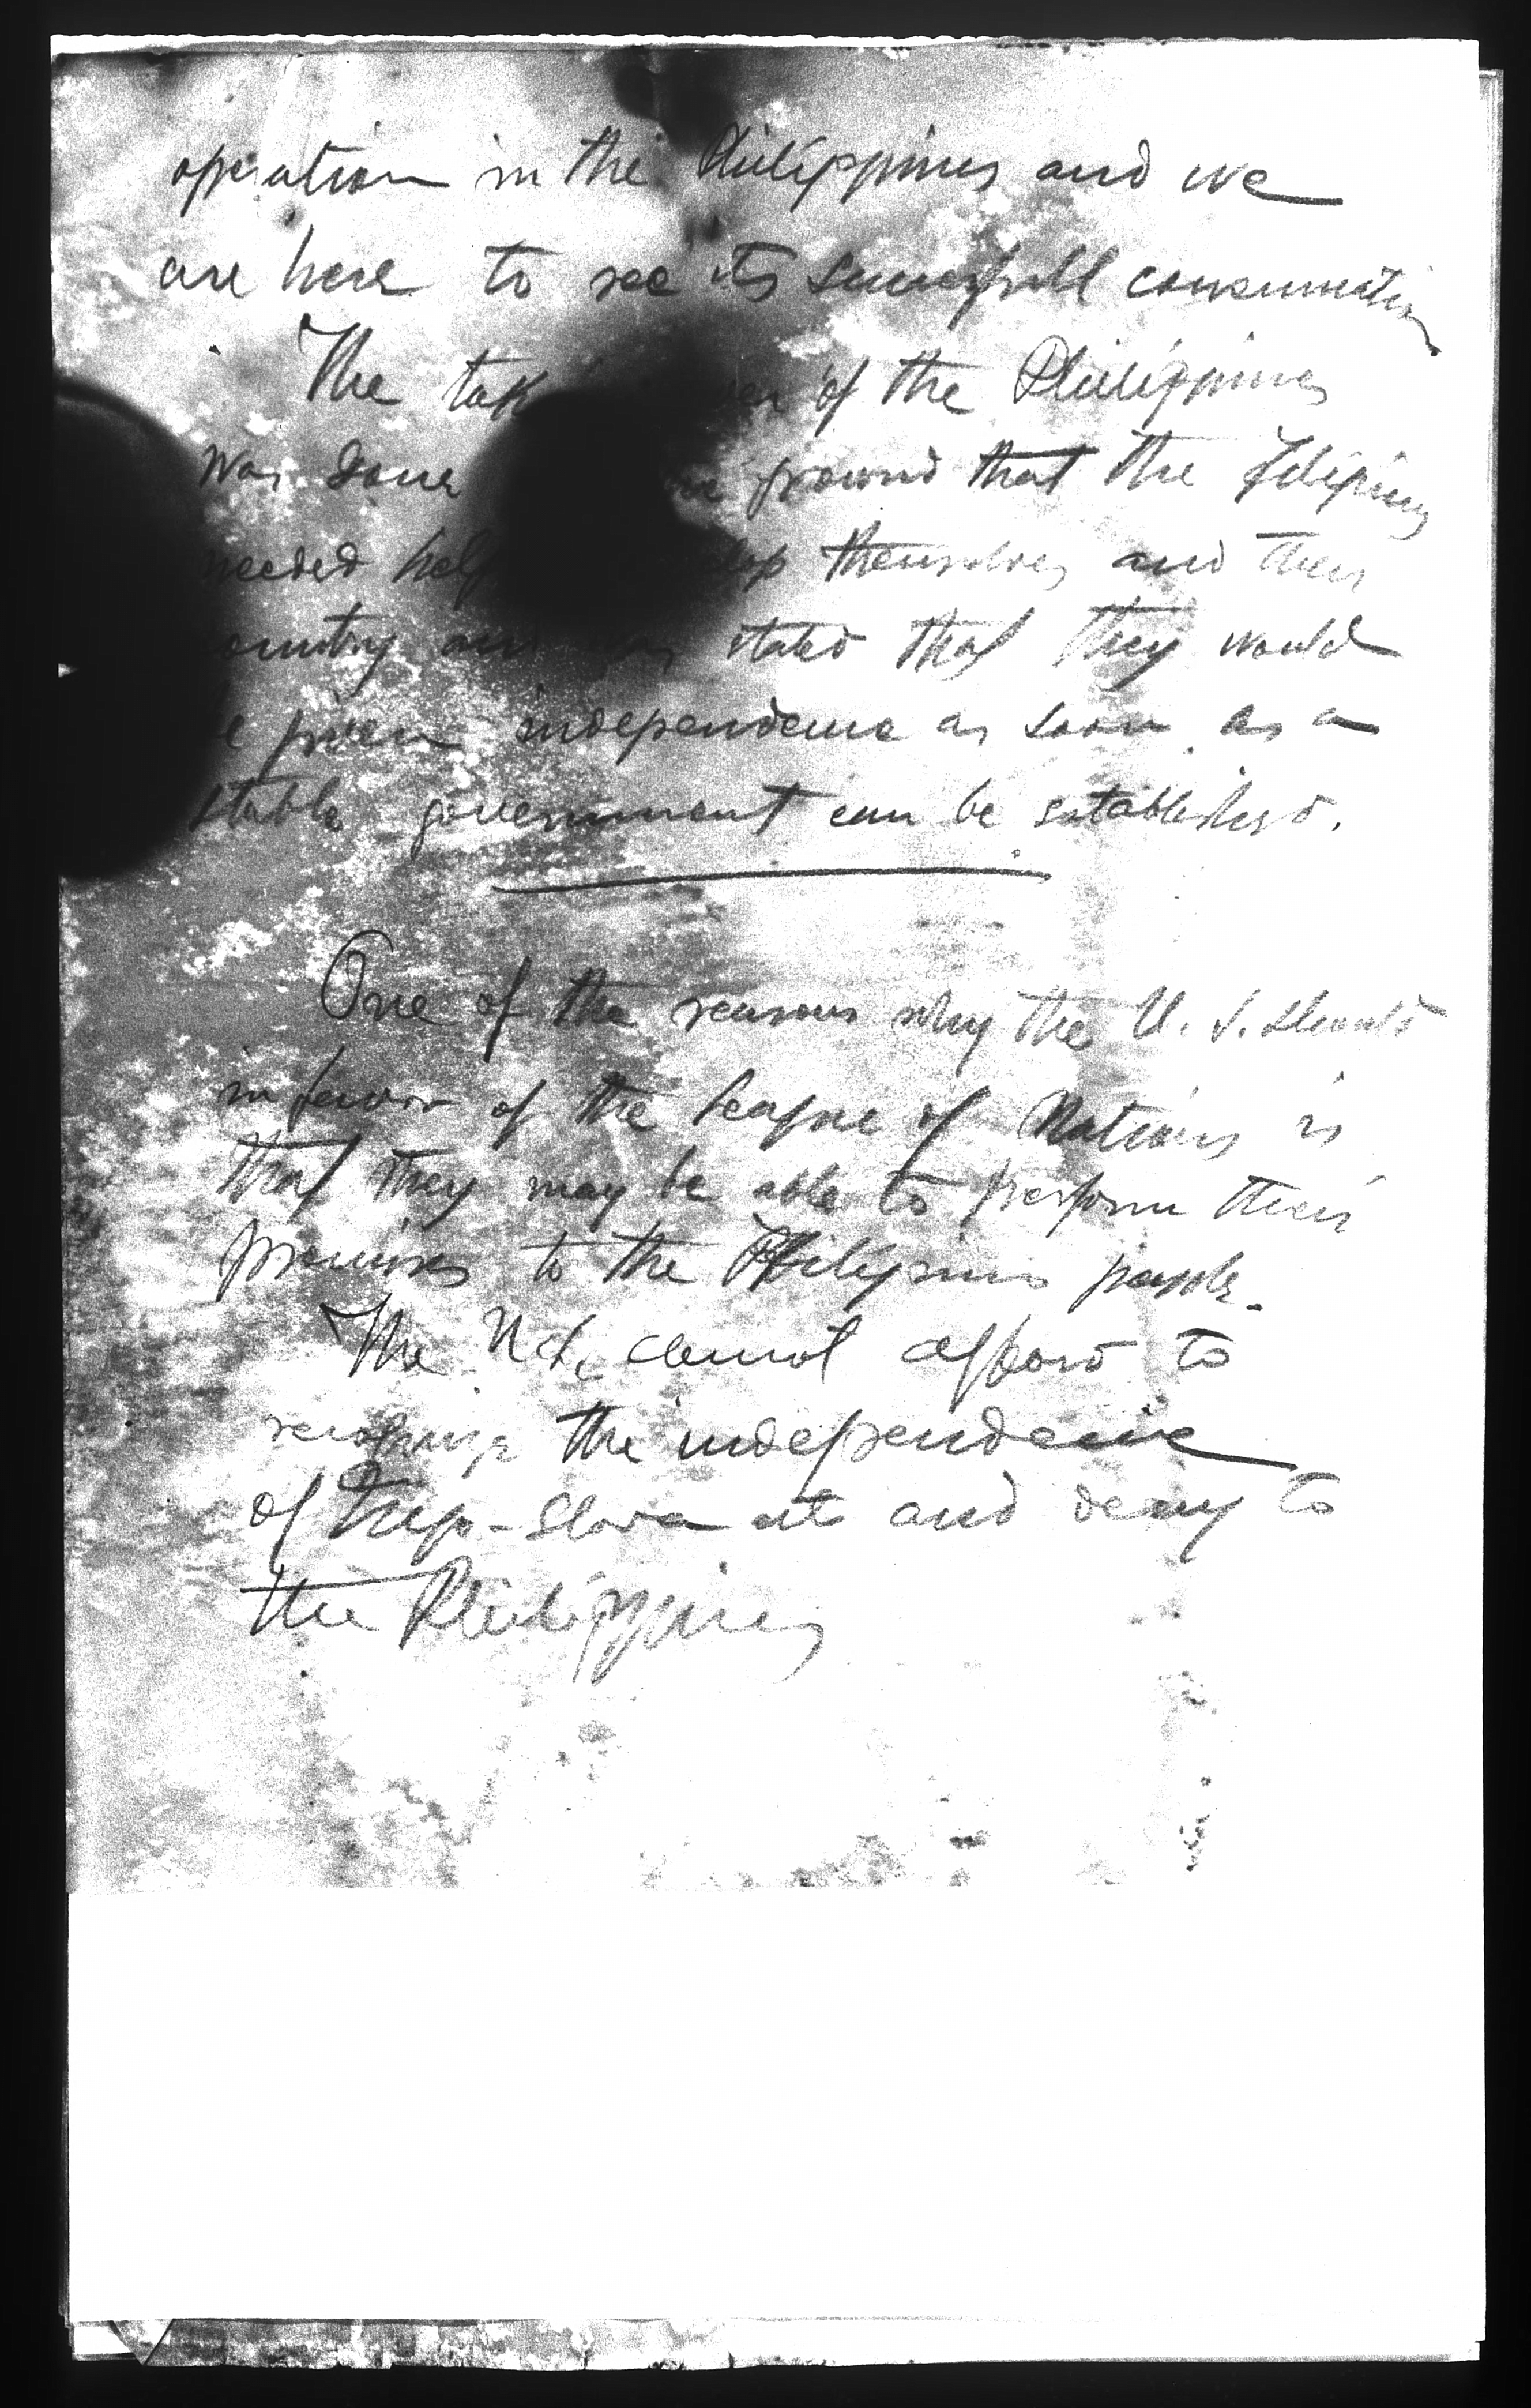 operation in the Philippines and we
are here to see its successfull consumation
The tak of the Philippines
was done ground that the Filipinos
needed help themselves and their
country stated that they would
given independence as soon as a
stable government can be established.
One of the reasons why the U. S. should
in favor of the League of Nations is
that they may be able to perform their
promises to the Philippines people.
The cannot afford to
recognize the independence
of and deny to
the Philippines